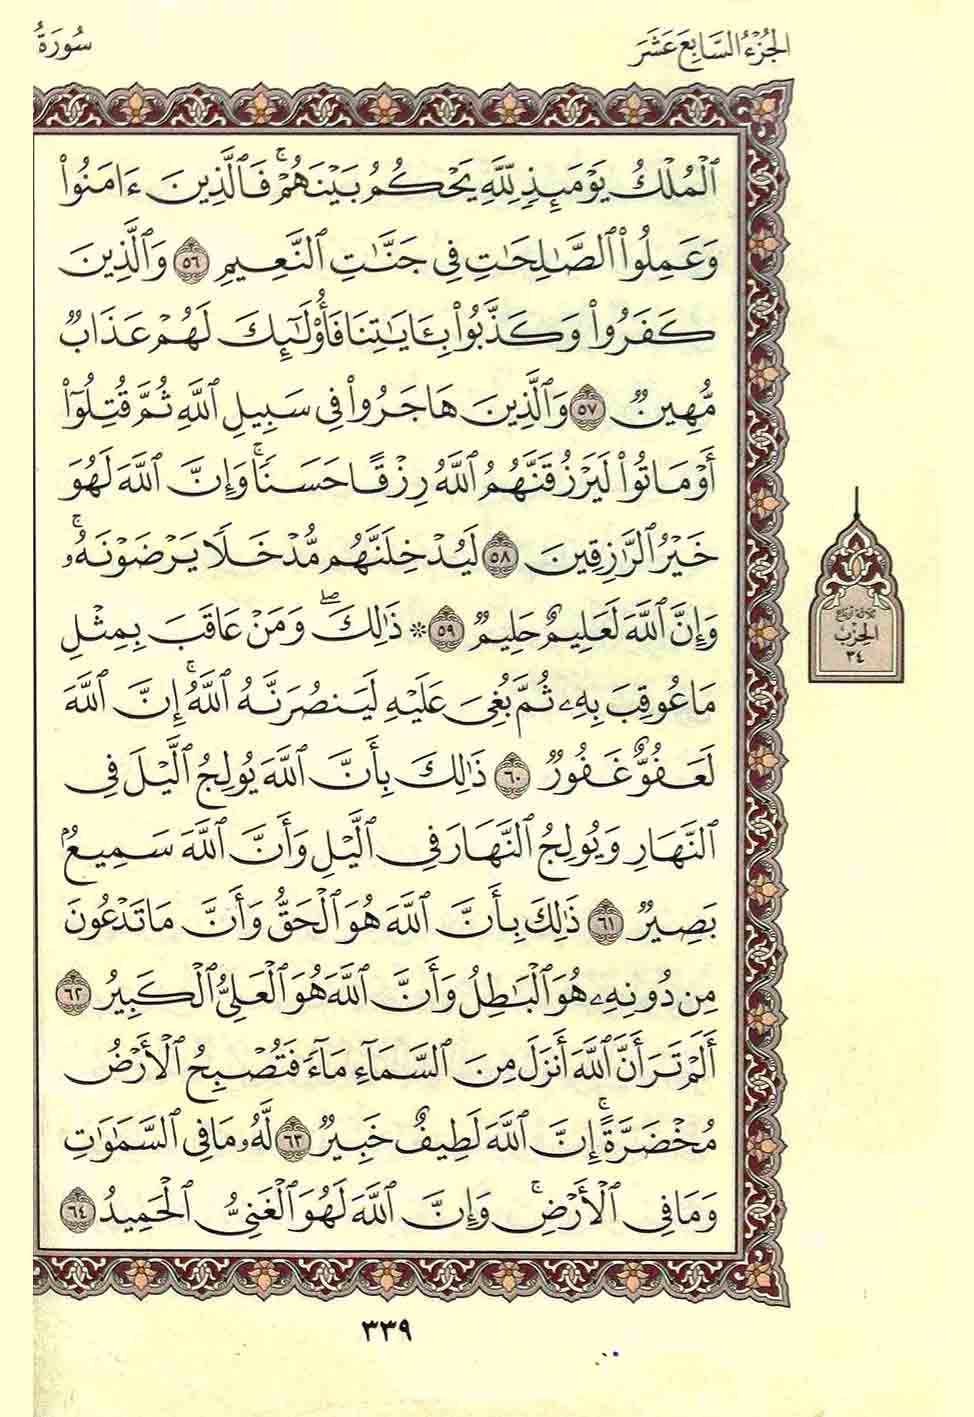 الجُزْءُ السَّابِعَ عَشَرَ
سُورَةُ
ٱلْمُلْكُ يَوْمَئِذٍ لِّلَّهِ يَحْكُمُ بَيْنَهُمْۚ فَٱلَّذِينَ ءَامَنُوا۟
وَعَمِلُوا۟ ٱلصَّـٰلِحَـٰتِ فِى جَنَّـٰتِ ٱلنَّعِيمِ ٥٦ وَٱلَّذِينَ
كَفَرُوا۟ وَكَذَّبُوا۟ بِـَٔايَـٰتِنَا فَأُو۟لَـٰٓئِكَ لَهُمْ عَذَابٌ
مُّهِينٌ ٥٧ وَٱلَّذِينَ هَاجَرُوا۟ فِى سَبِيلِ ٱللَّهِ ثُمَّ قُتِلُوٓا۟
أَوْ مَاتُوا۟ لَيَرْزُقَنَّهُمُ ٱللَّهُ رِزْقًا حَسَنًاۚ وَإِنَّ ٱللَّهَ لَهُوَ
خَيْرُ ٱلرَّٰزِقِينَ ٥٨ لَيُدْخِلَنَّهُم مُّدْخَلًا يَرْضَوْنَهُۥۚ
وَإِنَّ ٱللَّهَ لَعَلِيمٌ حَلِيمٌ ٥٩ * ذَٰلِكَۖ وَمَنْ عَاقَبَ بِمِثْلِ
مَا عُوقِبَ بِهِۦ ثُمَّ بُغِىَ عَلَيْهِ لَيَنصُرَنَّهُ ٱللَّهُۚ إِنَّ ٱللَّهَ
لَعَفُوٌّ غَفُورٌ ٦٠ ذَٰلِكَ بِأَنَّ ٱللَّهَ يُولِجُ ٱلَّيْلَ فِى
ٱلنَّهَارِ وَيُولِجُ ٱلنَّهَارَ فِى ٱلَّيْلِ وَأَنَّ ٱللَّهَ سَمِيعٌۢ
بَصِيرٌ ٦١ ذَٰلِكَ بِأَنَّ ٱللَّهَ هُوَ ٱلْحَقُّ وَأَنَّ مَا تَدْعُونَ
مِن دُونِهِۦ هُوَ ٱلْبَـٰطِلُ وَأَنَّ ٱللَّهَ هُوَ ٱلْعَلِىُّ ٱلْكَبِيرُ ٦٢
أَلَمْ تَرَ أَنَّ ٱللَّهَ أَنزَلَ مِنَ ٱلسَّمَآءِ مَآءً فَتُصْبِحُ ٱلْأَرْضُ
مُخْضَرَّةًۚ إِنَّ ٱللَّهَ لَطِيفٌ خَبِيرٌ ٦٣ لَّهُۥ مَا فِى ٱلسَّمَـٰوَٰتِ
وَمَا فِى ٱلْأَرْضِۚ وَإِنَّ ٱللَّهَ لَهُوَ ٱلْغَنِىُّ ٱلْحَمِيدُ ٦٤
ثلاثة أرباع
الحِزْبِ
٣٤
٣٣٩